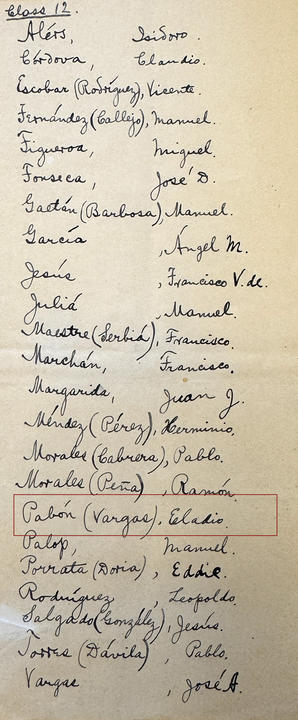 Class 12.
Alérs, Isidoro.
Córdova, Claudio.
Escobar (Rodríguez), Vicente.
Fernández (Callejo), Manuel.
Figueroa, Miguel.
Fonseca, José D.
Gaetán (Barbosa), Manuel.
García, Ángel M.
Jesús, Francisco V. de.
Juliá, Manuel.
Maestre (Serbiá), Francisco.
Marchán, Francisco.
Margarida, Juan J.
Méndez (Pérez), Herminio.
Morales (Cabrera), Pablo.
Morales (Peña), Ramón.
Pabón (Vargas), Eladio.
Palop, Manuel.
Porrata (Doria), Eddie.
Rodríguez, Leopoldo.
Salgado (González), Jesús.
Torres (Dávila), Pablo.
Vargas, José A.